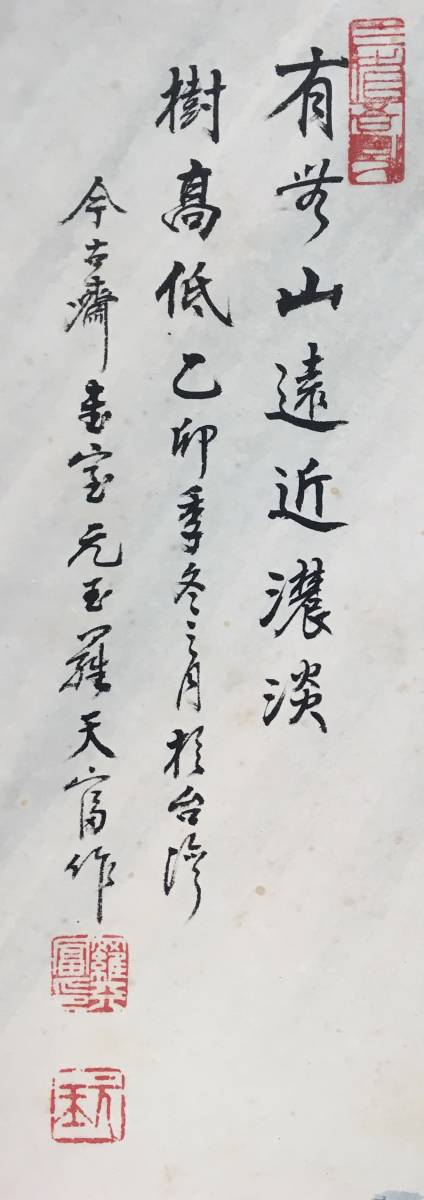 有無山遠近濃淡
樹高低乙卯季冬之月於台灣
今古齋畫室元玉羅天富作
羅天富印
元玉